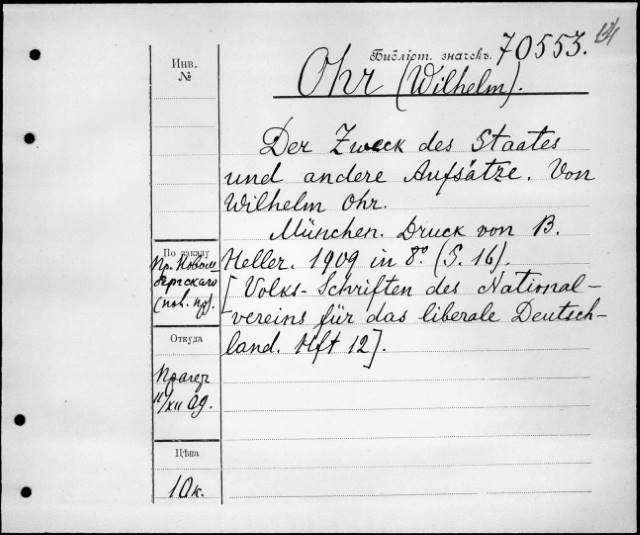 Библіот. значекъ. 70553.
Инв.
№
Ohr (Wilhelm).
Der Zweck des Staates
und andere Aufsätze. Von
Wilhelm Ohr.
München. Druck von B.
Heller. 1909 in 8º. (S. 16).
[Volks-Schriften des National-
vereins für das liberale Deutsch-
land. Hft 12].
По заказу
Пр.
Откуда
11/XII 09.
Цѣна
10к.